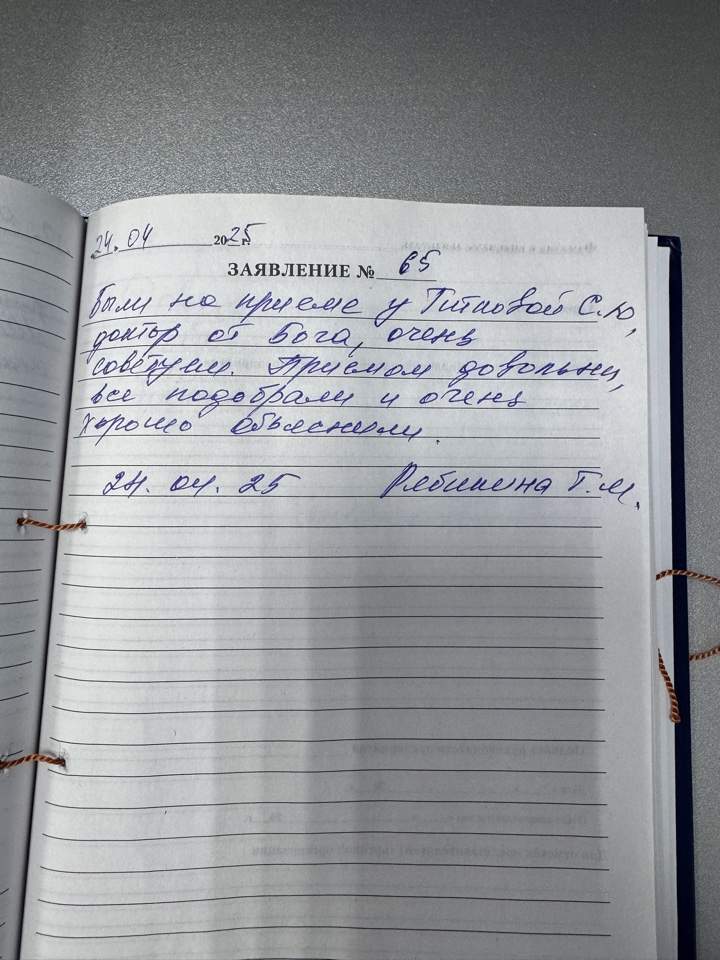 24.04 2025 г.
ЗАЯВЛЕНИЕ № 65
Были на приеме у Титковой С.Ю,
доктор от Бога, очень
советуем. Приемом довольны,
все подобрали и очень
хорошо объяснили.
24.04.25 Рябинина Г.М.